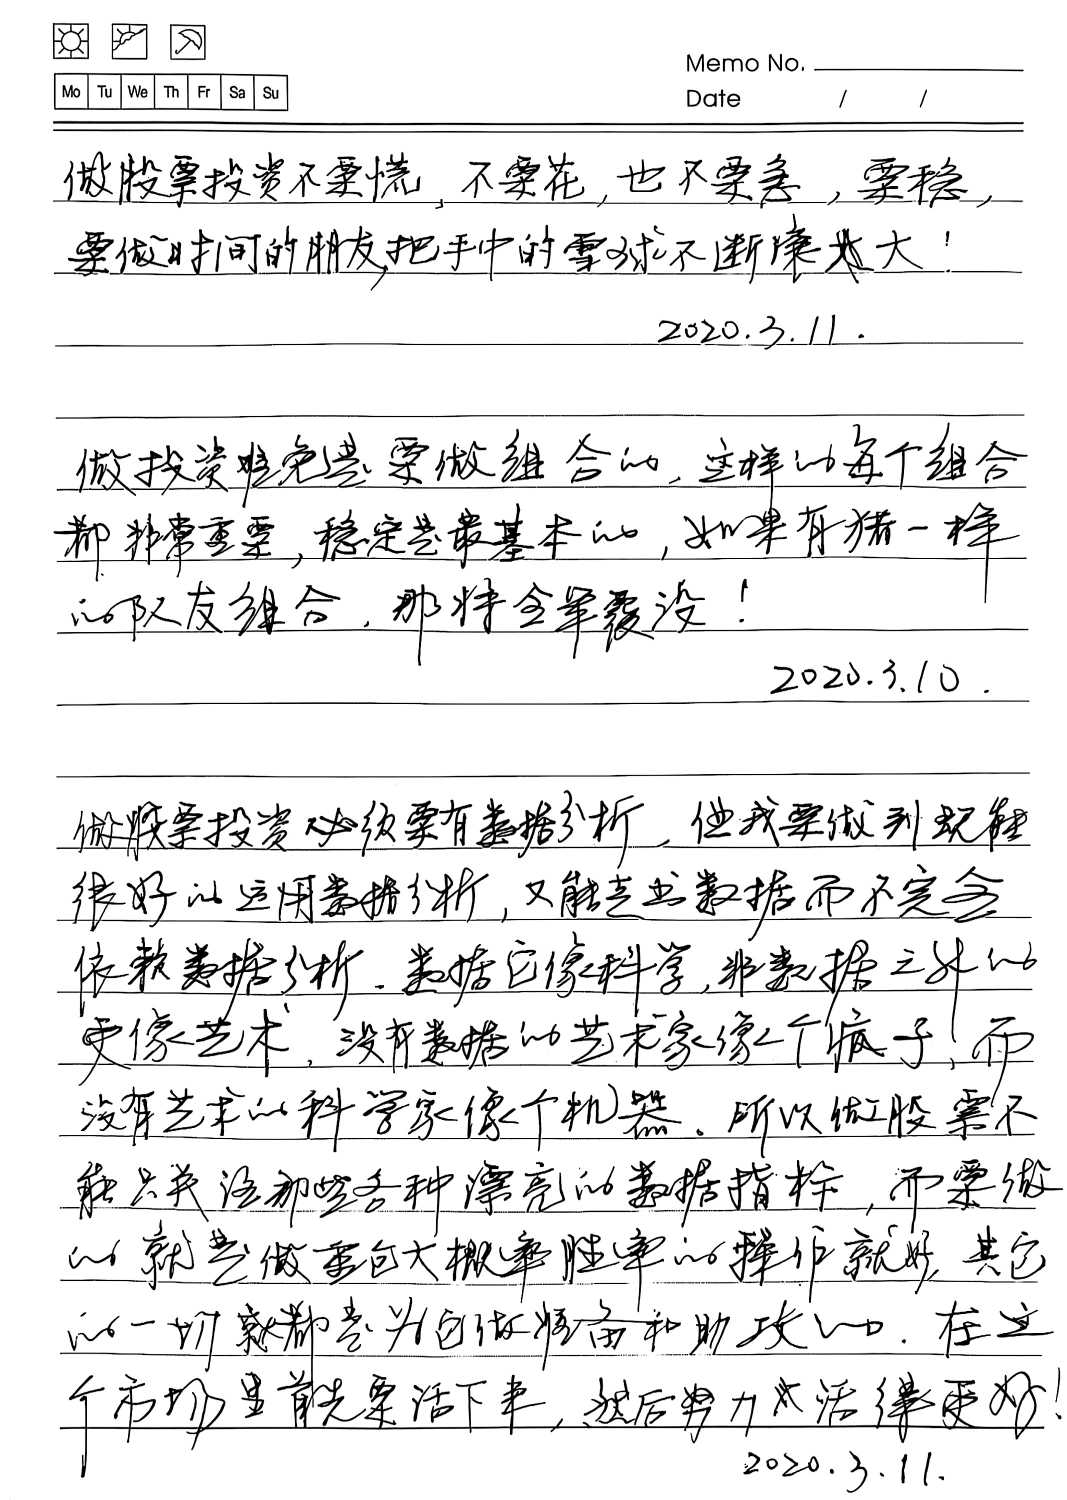 Memo No.
Mo Tu We Th Fr Sa Su
Date / /
做股票投资不要慌,不要花,也不要急,要稳,
要做时间的朋友,把手中的雪球不断滚大!
2020.3.11.
做投资难免是要做组合的,这样的每个组合
都非常重要,稳定是最基本的,如果有猪一样
的队友组合,那将全军覆没!
2020.3.10.
做股票投资必须要有数据分析,但我要做到既能
很好的运用数据分析,又能走出数据而不完全
依赖数据分析.数据它像科学,非数据之外的
更像艺术,没有数据的艺术家像个疯子,而
没有艺术的科学家像个机器.所以做股票不
能只关注那些各种漂亮的数据指标,而要做
的就是做重仓大概率胜率的操作就好,其它
的一切就都是为它做准备和助攻的.在这
个市场里首先要活下来,然后努力才活得更好!
2020.3.11.